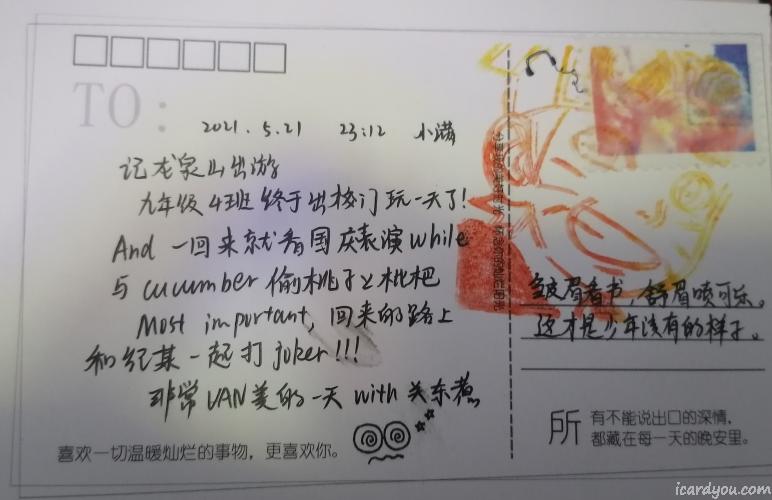 TO:
2021.5.21 23:12 小满
记龙泉山出游
九年级4班终于出校门玩一天了!
And 一回来就看国庆表演 while
与 cucumber 偷桃子与枇杷
Most important, 回来的路上
和纪某一起打 joker!!!
非常VAN美的一天 with 关东煮
喜欢一切温暖灿烂的事物，更喜欢你。
皱眉看书，舒眉喷可乐。
这才是少年该有的样子。
所有不能说出口的深情，
都藏在每一天的晚安里。
icardyou.com